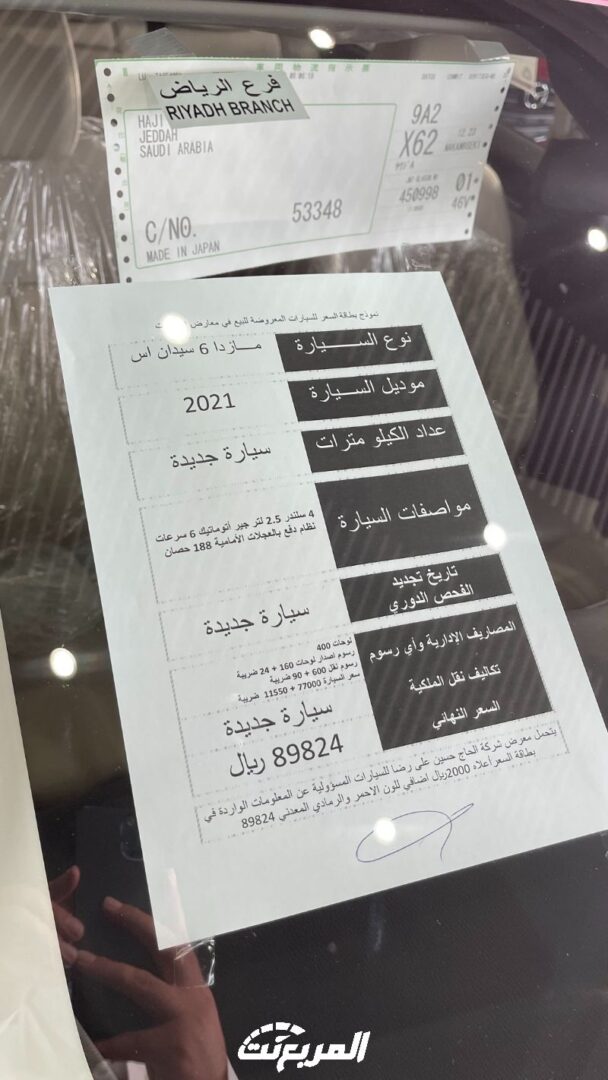 車両物流指示票
فرع الرياض
RIYADH BRANCH
HAJI
JEDDAH
SAUDI ARABIA
C/NO. 53348
MADE IN JAPAN
9A2
X62
12.23
450998
01
46V
نموذج بطاقة السعر للسيارات المعروضة للبيع في معارض
نوع الســـــيارة مـــازدا 6 سيدان اس
موديل السيارة 2021
عداد الكيلو مترات سيارة جديدة
مواصفات السيارة
4 سلندر 2.5 لتر جير أتوماتيك 6 سرعات
نظام دفع بالعجلات الأمامية 188 حصان
تاريخ تجديد
الفحص الدوري
سيارة جديدة
المصاريف الإدارية وأي رسوم
لوحات 400
رسوم اصدار لوحات 160 + 24 ضريبة
رسوم نقل 600 + 90 ضريبة
سعر السيارة 77000 + 11550 ضريبة
تكاليف نقل الملكية سيارة جديدة
السعر النهائي 89824 ريال
يتحمل معرض شركة الحاج حسين على رضا للسيارات المسؤولية عن المعلومات الواردة في
بطاقة السعر أعلاه 2000ريال اضافي للون الاحمر والرمادي المعدني 89824
المربع نت